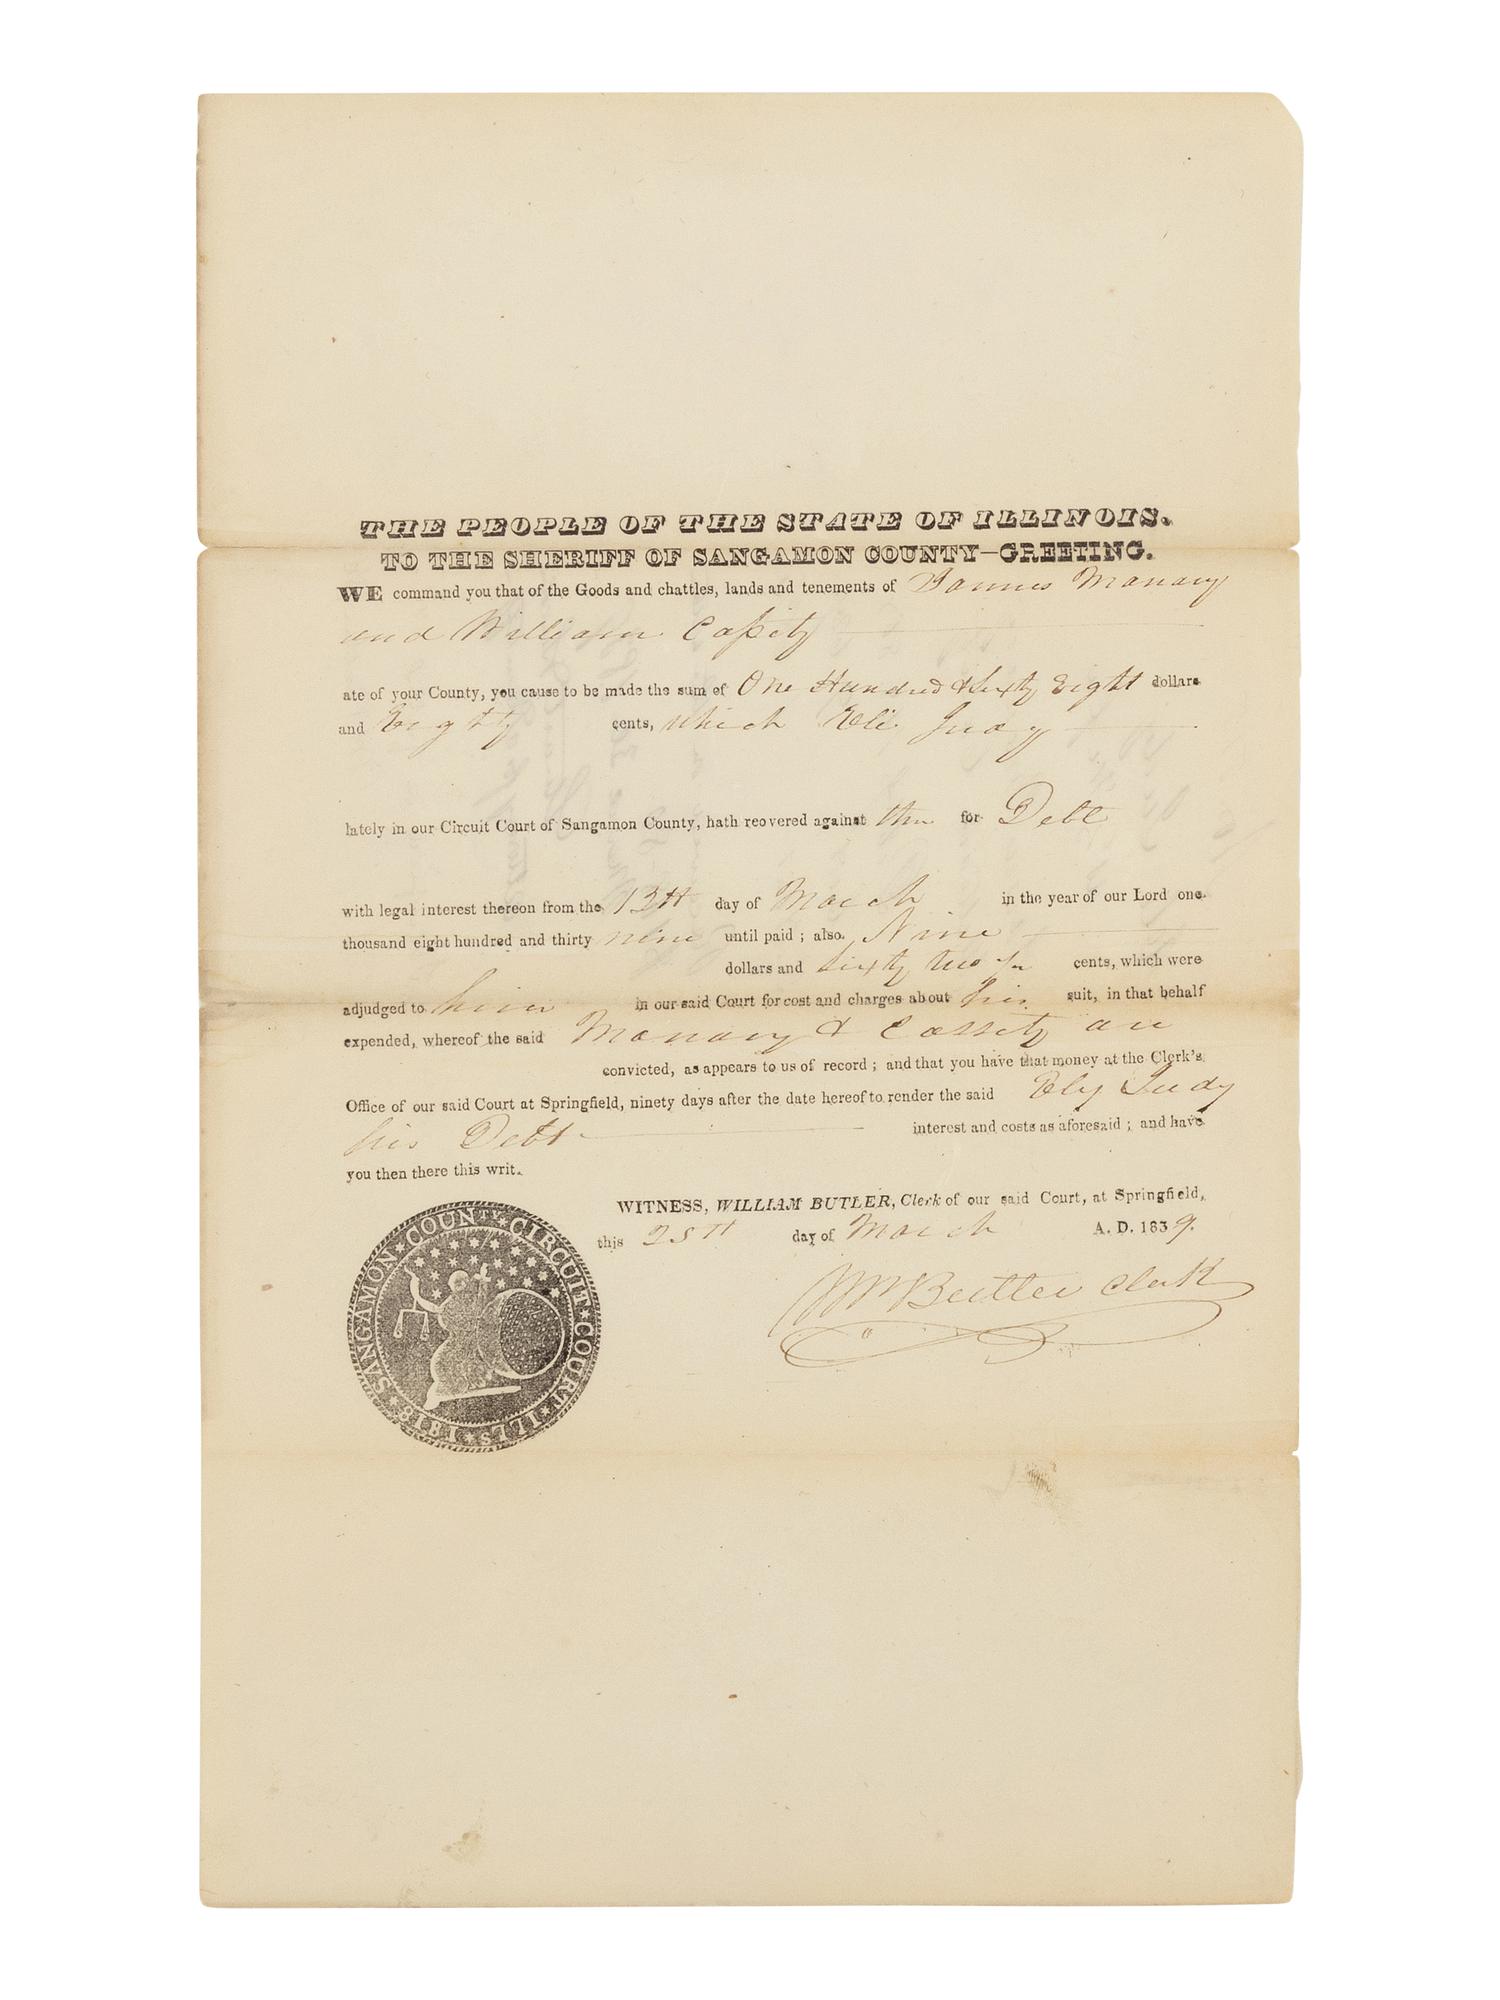 THE PEOPLE OF THE STATE OF ILLINOIS.
TO THE SHERIFF OF SANGAMON COUNTY—GREETING.
WE command you that of the Goods and chattles, lands and tenements of James Manary
and William Caſsity
ate of your County, you cause to be made the sum of One Hundred & Sixty Eight dollars
and Eighty cents, which Eli Judy
lately in our Circuit Court of Sangamon County, hath reovered against for Debt
with legal interest thereon from the 13th day of March in the year of our Lord one
thousand eight hundred and thirty nine until paid; also. Nine
dollars and sixty two cents, which were
adjudged to him in our said Court for cost and charges about his suit, in that behalf
expended, whereof the said Manary & Cassity are
convicted, as appears to us of record; and that you have that money at the Clerk's
Office of our said Court at Springfield, ninety days after the date hereof to render the said Ely Judy
his Debt interest and costs as aforesaid; and have
you then there this writ.
WITNESS, WILLIAM BUTLER, Clerk of our said Court, at Springfield,
this 25th day of March A. D. 1839.
Wm Butler Clerk
SANGAMON COUNTY CIRCUIT COURT ILLS 1818